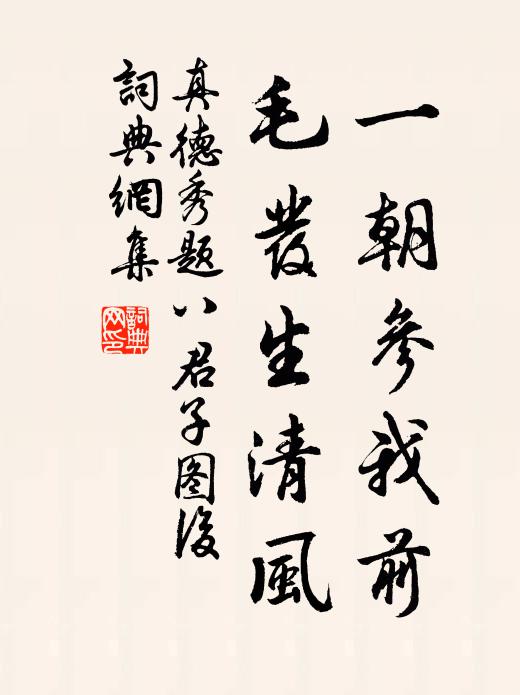 一朝參我前
毛發生清風
真德秀題八君子图後
詞典網集
詞典网印